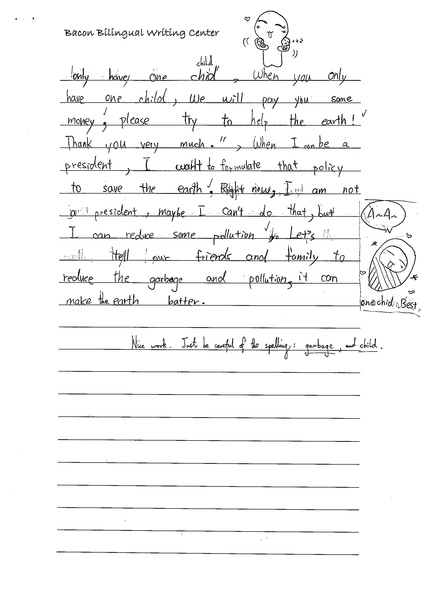 Bacon Bilingual Writing Center
child
only have one chid, When you only
have one child, We will pay you some
money, please try to help the earth!
Thank you very much.", When I can be a
president, I want to formulate that policy
to save the earth, Right now, I am not
president, maybe I can't do that, but
I can reduce some pollution Let's
tell our friends and family to
reduce the garbage and pollution, it can
make the earth batter.
A~A~
one chid, Best,
Nice work. Just be careful of the spelling: garbage, and child.